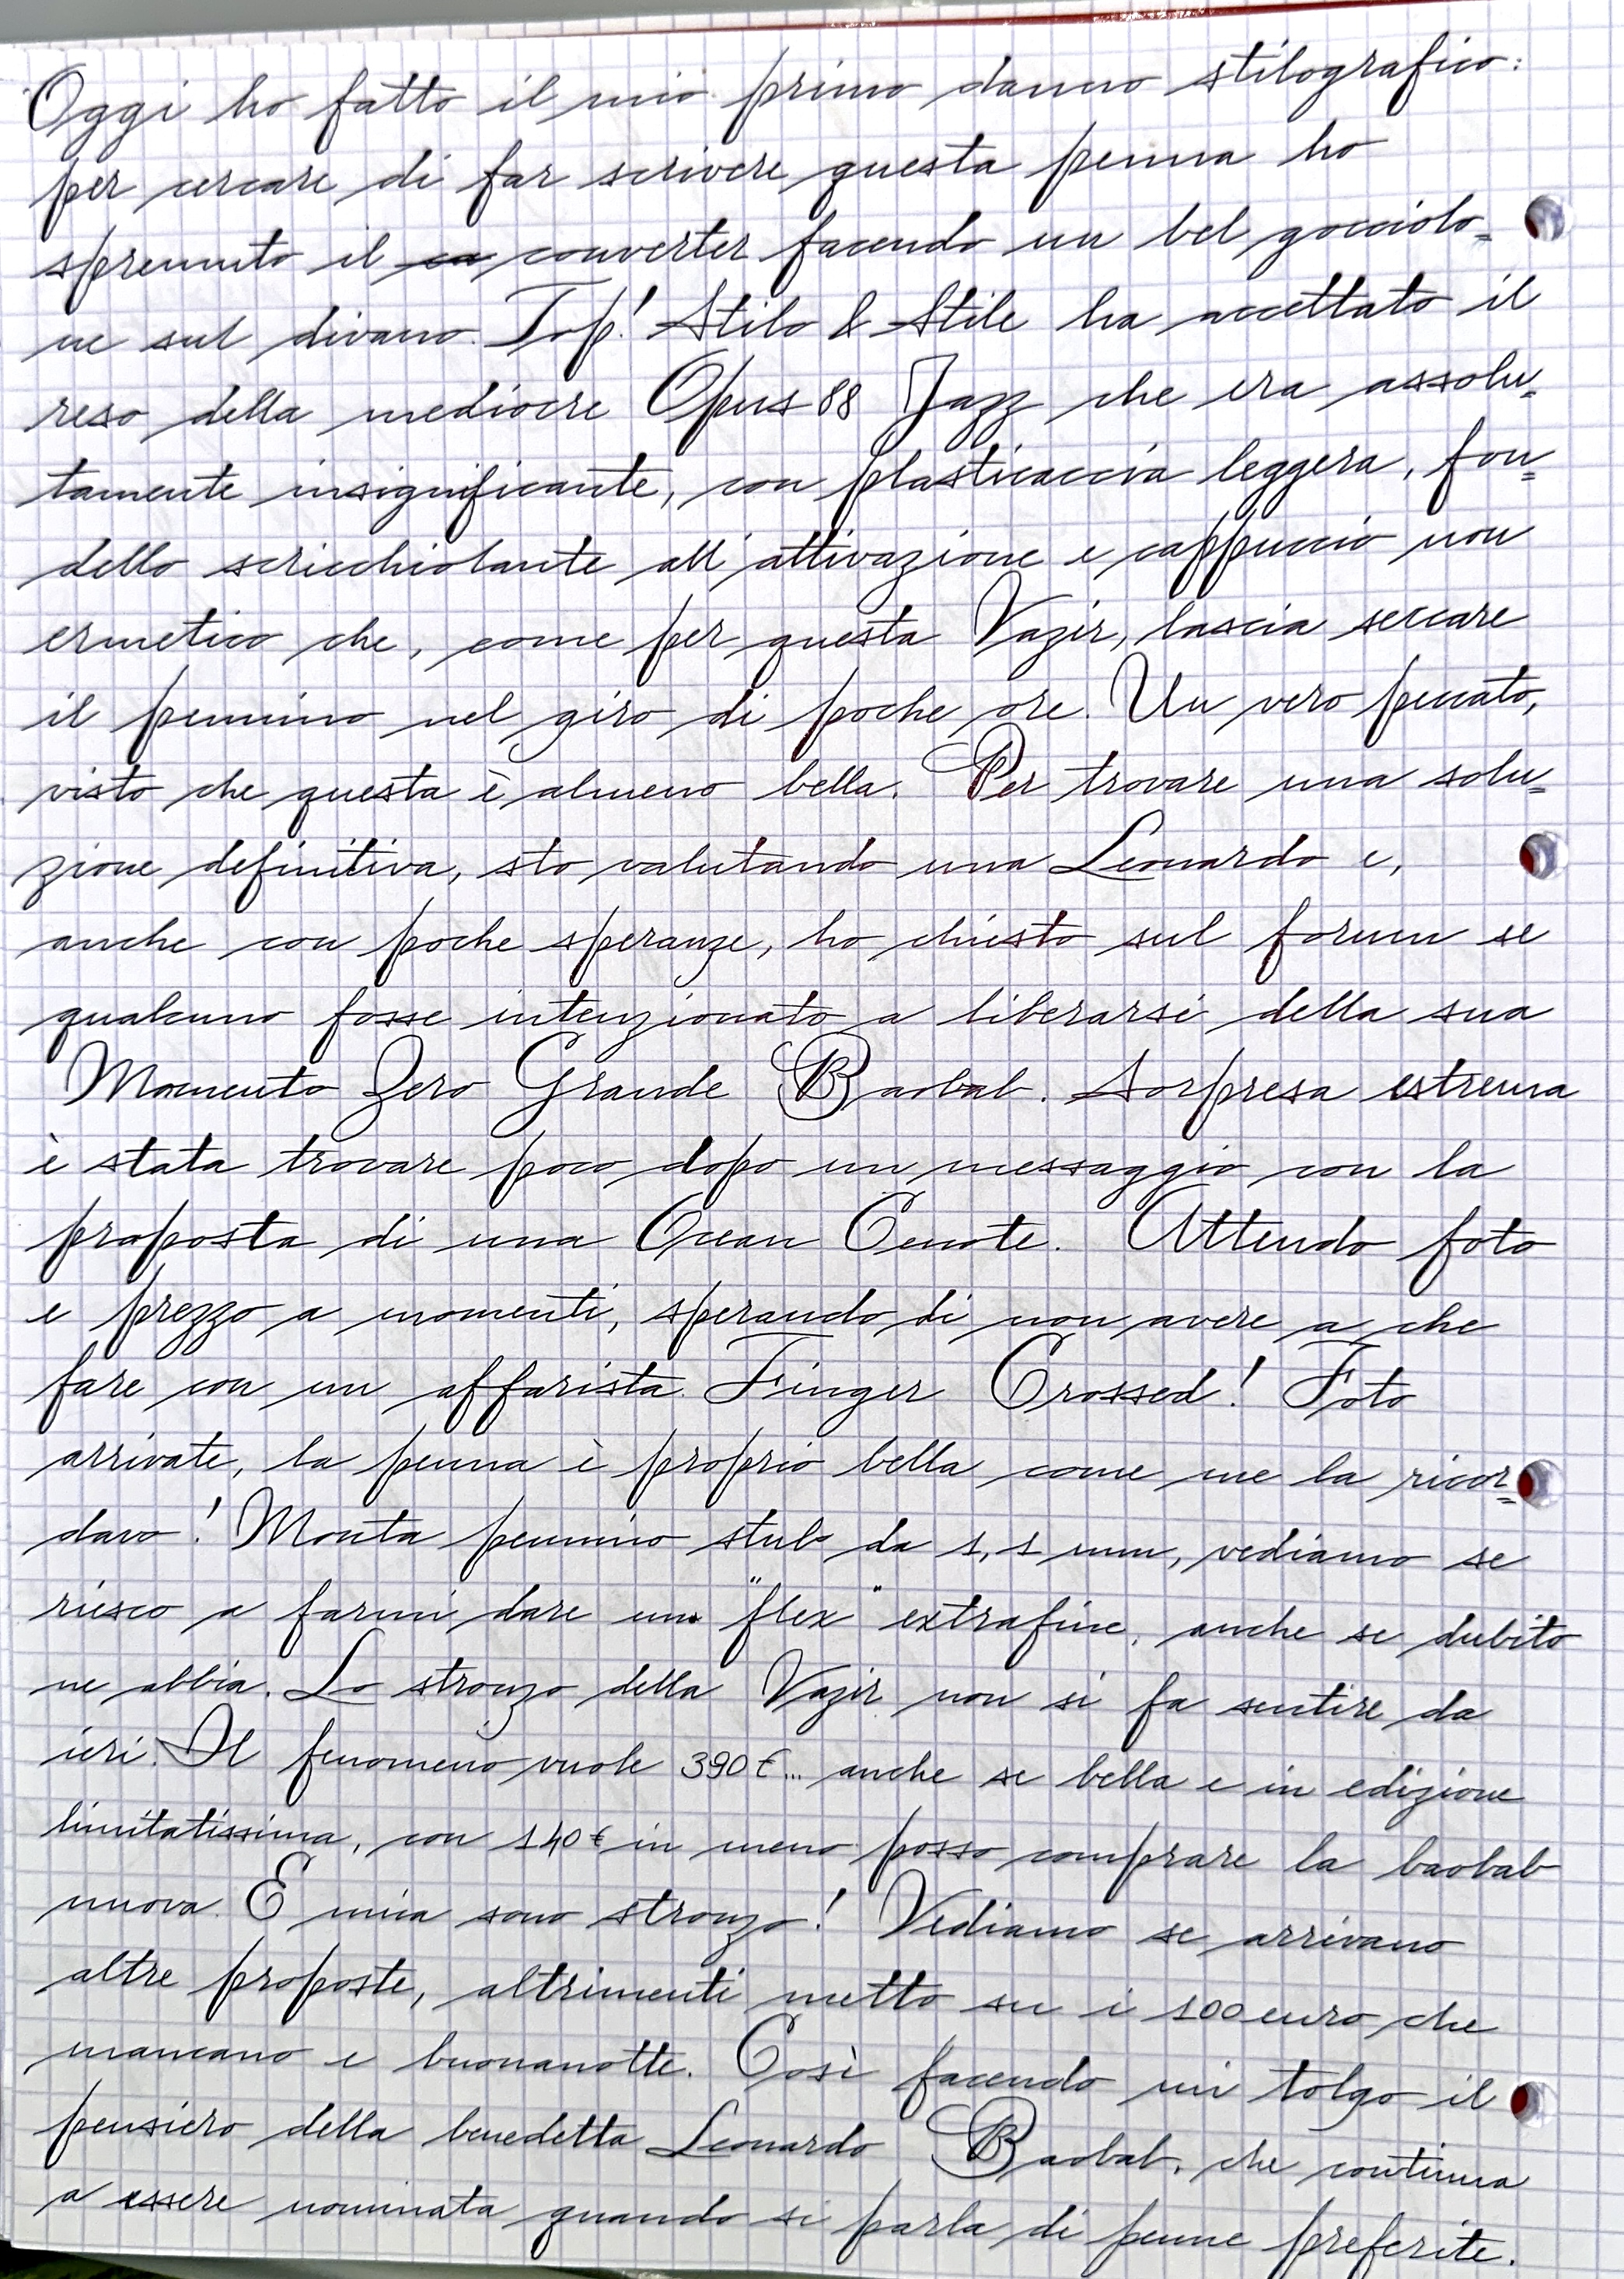 Oggi ho fatto il mio primo danno stilografico:
per cercare di far scrivere questa penna ho
spremuto il ca converter facendo un bel gocciolo=
ne sul divano. Top! Stilo & Stile ha accettato il
reso della mediocre Opus 88 Jazz che era assolu=
tamente insignificante, con plasticaccia leggera, fon=
dello scricchiolante all'attivazione e cappuccio non
ermetico che, come per questa Vazir, lascia seccare
il pennino nel giro di poche ore. Un vero peccato,
visto che questa è almeno bella. Per trovare una solu=
zione definitiva, sto valutando una Leonardo e,
anche con poche speranze, ho chiesto sul forum se
qualcuno fosse intenzionato a liberarsi della sua
Momento Zero Grande Baobab. Sorpresa estrema
è stata trovare poco dopo un messaggio con la
proposta di una Ocean Cenote. Attendo foto
e prezzo a momenti, sperando di non avere a che
fare con un affarista. Finger Crossed! Foto
arrivate, la penna è proprio bella come me la ricor=
davo! Monta pennino stub da 1,1 mm, vediamo se
riesco a farmi dare un "flex" extrafine, anche se dubito
ne abbia. Lo stronzo della Vazir non si fa sentire da
ieri. Il fenomeno vuole 390€... anche se bella e in edizione
limitatissima, con 140€ in meno posso comprare la baobab
nuova. E mica sono stronzo! Vediamo se arrivano
altre proposte, altrimenti metto su i 100 euro che
mancano e buonanotte. Così facendo mi tolgo il
pensiero della benedetta Leonardo Baobab, che continua
a essere nominata quando si parla di penne preferite.